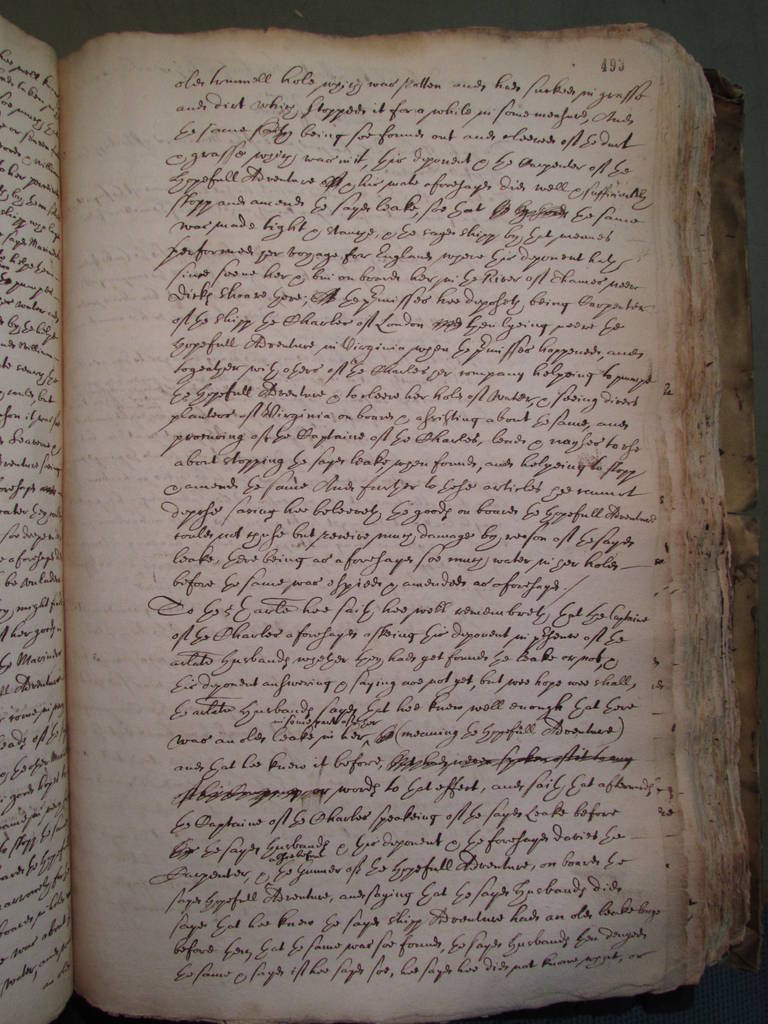 493
olde trunnell hole which was rotten and had sucked in grasse
and dirt which stopped it for a while in some measure, And
the same being soe found out and cleered of the durt
& grasse which was in it, this deponent & the Carpenter of the
Hopefull Adventure & his mate aforesayd did well & sufficiently
stopp and amend the sayd leake, soe that the same
was made tight & stanch, & the sayd shipp by that meanes
performed her voyage for England where this deponent hath
since seene her & bin on board her in the River of Thames neere
Dicks shoare here; the premisses hee deposeth being Carpenter
of the shipp the Charles of London then lyeing neere the
Hopefull Adventure in Virginia when the premisses happened, and
togeather with others of the Charles her company helpeing to pumpe
the Hopefull Adventure & to cleere her hold of water & seeing divers
planters of Virginia on board & assisting about the same, and
procuring of the Captaine of the Charles, leade & nayles to use
about stopping the sayd leake when found, and helpeing to stopp
& amend the same And further to these articles hee cannot
depose saving hee beleeveth the goods on board the Hopefull Adventure
could not chuse but receive much damage by reason of the sayd
leake, there being as aforesayd soe much water in her hold
before the same was espied & amended as aforesayd /
To the 5th article hee saith hee well remembreth that the Captaine
of the Charles aforesayd asking this deponent in presence of the
arlate Husbands whether they had yet found the leake or not &
this deponent answering & saying wee not yet, but wee hope wee shall,
the arlate Husbands sayd that hee knew well enough that there
in some part of her
was an olde leake in her (meaning the Hopefull Adventure)
and that hee knew it before,
or words to that effect, and saith that afterwards
the Captaine of the Charles speakeing of the sayd Leake before
the sayd Husbands & this deponent & the foresayd Davies the
Carpenter, & the Gunner of the Hopefull Adventure, on board the
sayd Hopefull Adventure, and saying that the sayd Husbands did
say that hee knew the sayd shipp Adventure had an olde leake
before then that the same was soe found, the sayd Husbands then denyed
the same & sayd if hee sayd soe, hee sayd hee did not know what, or